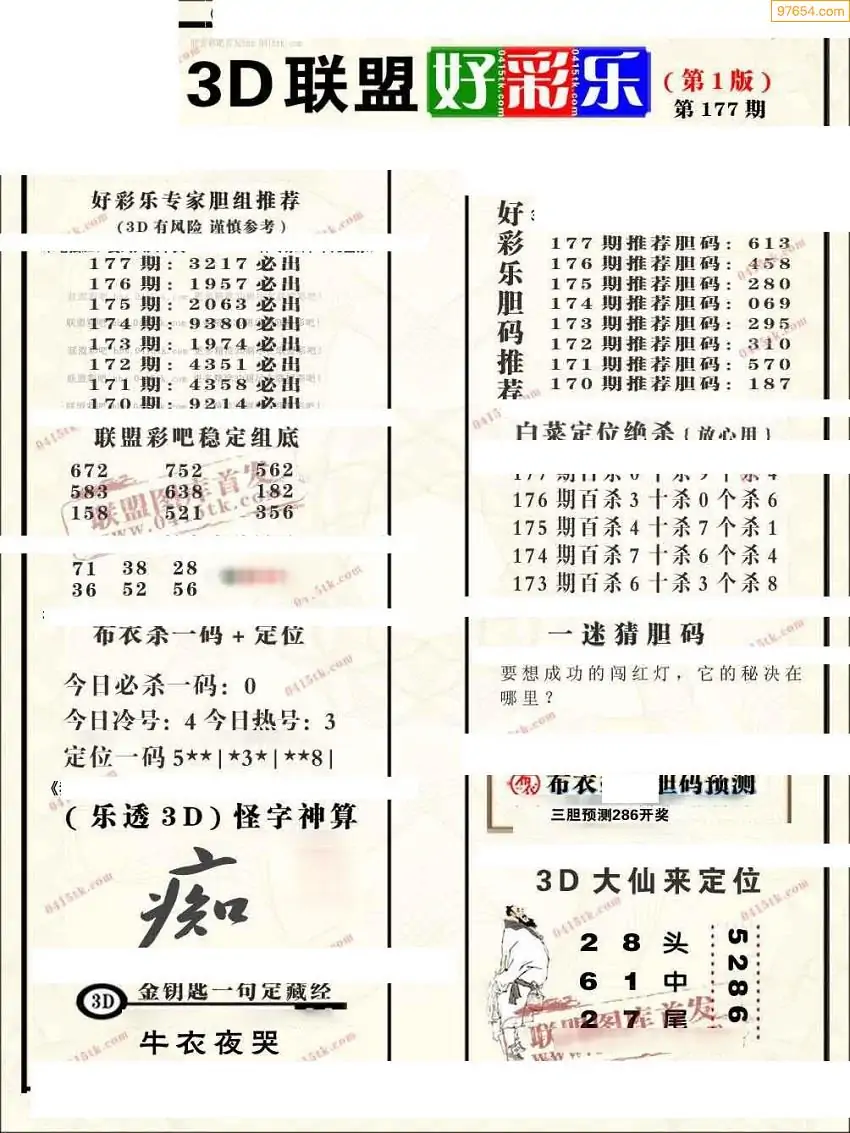 97654.com
3D联盟好彩乐
(第1版)
第177期
好彩乐专家胆组推荐
(3D有风险 谨慎参考)
177期:3217必出
176期:1957必出
175期:2063必出
174期:9380必出
173期:1974必出
172期:4351必出
171期:4358必出
170期:9214必出
联盟彩吧稳定组底
672 752 562
583 638 182
158 521 356
联盟图库首发
www.0415tk.com
71 38 28
36 52 56
布衣杀一码+定位
今日必杀一码:0
今日冷号:4 今日热号:3
定位一码5**|*3*|**8|
(乐透3D)怪字神算
痴
3D 金钥匙一句定藏经
牛衣夜哭
好彩乐胆码推荐
177期推荐胆码:613
176期推荐胆码:458
175期推荐胆码:280
174期推荐胆码:069
173期推荐胆码:295
172期推荐胆码:310
171期推荐胆码:570
170期推荐胆码:187
白菜定位绝杀{放心用}
177期百杀0十杀9个杀4
176期百杀3十杀0个杀6
175期百杀4十杀7个杀1
174期百杀7十杀6个杀4
173期百杀6十杀3个杀8
一迷猜胆码
要想成功的闯红灯,它的秘决在
哪里?
布衣 胆码预测
三胆预测286开奖
3D大仙来定位
2 8 头
6 1 中
2 7 尾
5286
联盟图库首发
0415tk.com